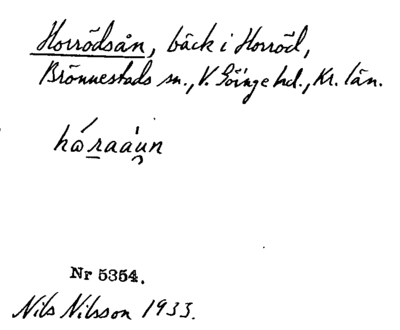 Horrödsån, bäck i Horröd,
Brönnestads sn., V. Göinge hd., Kr. län.
hώr̲aaún
Nr 5354.
Nils Nilsson 1933.